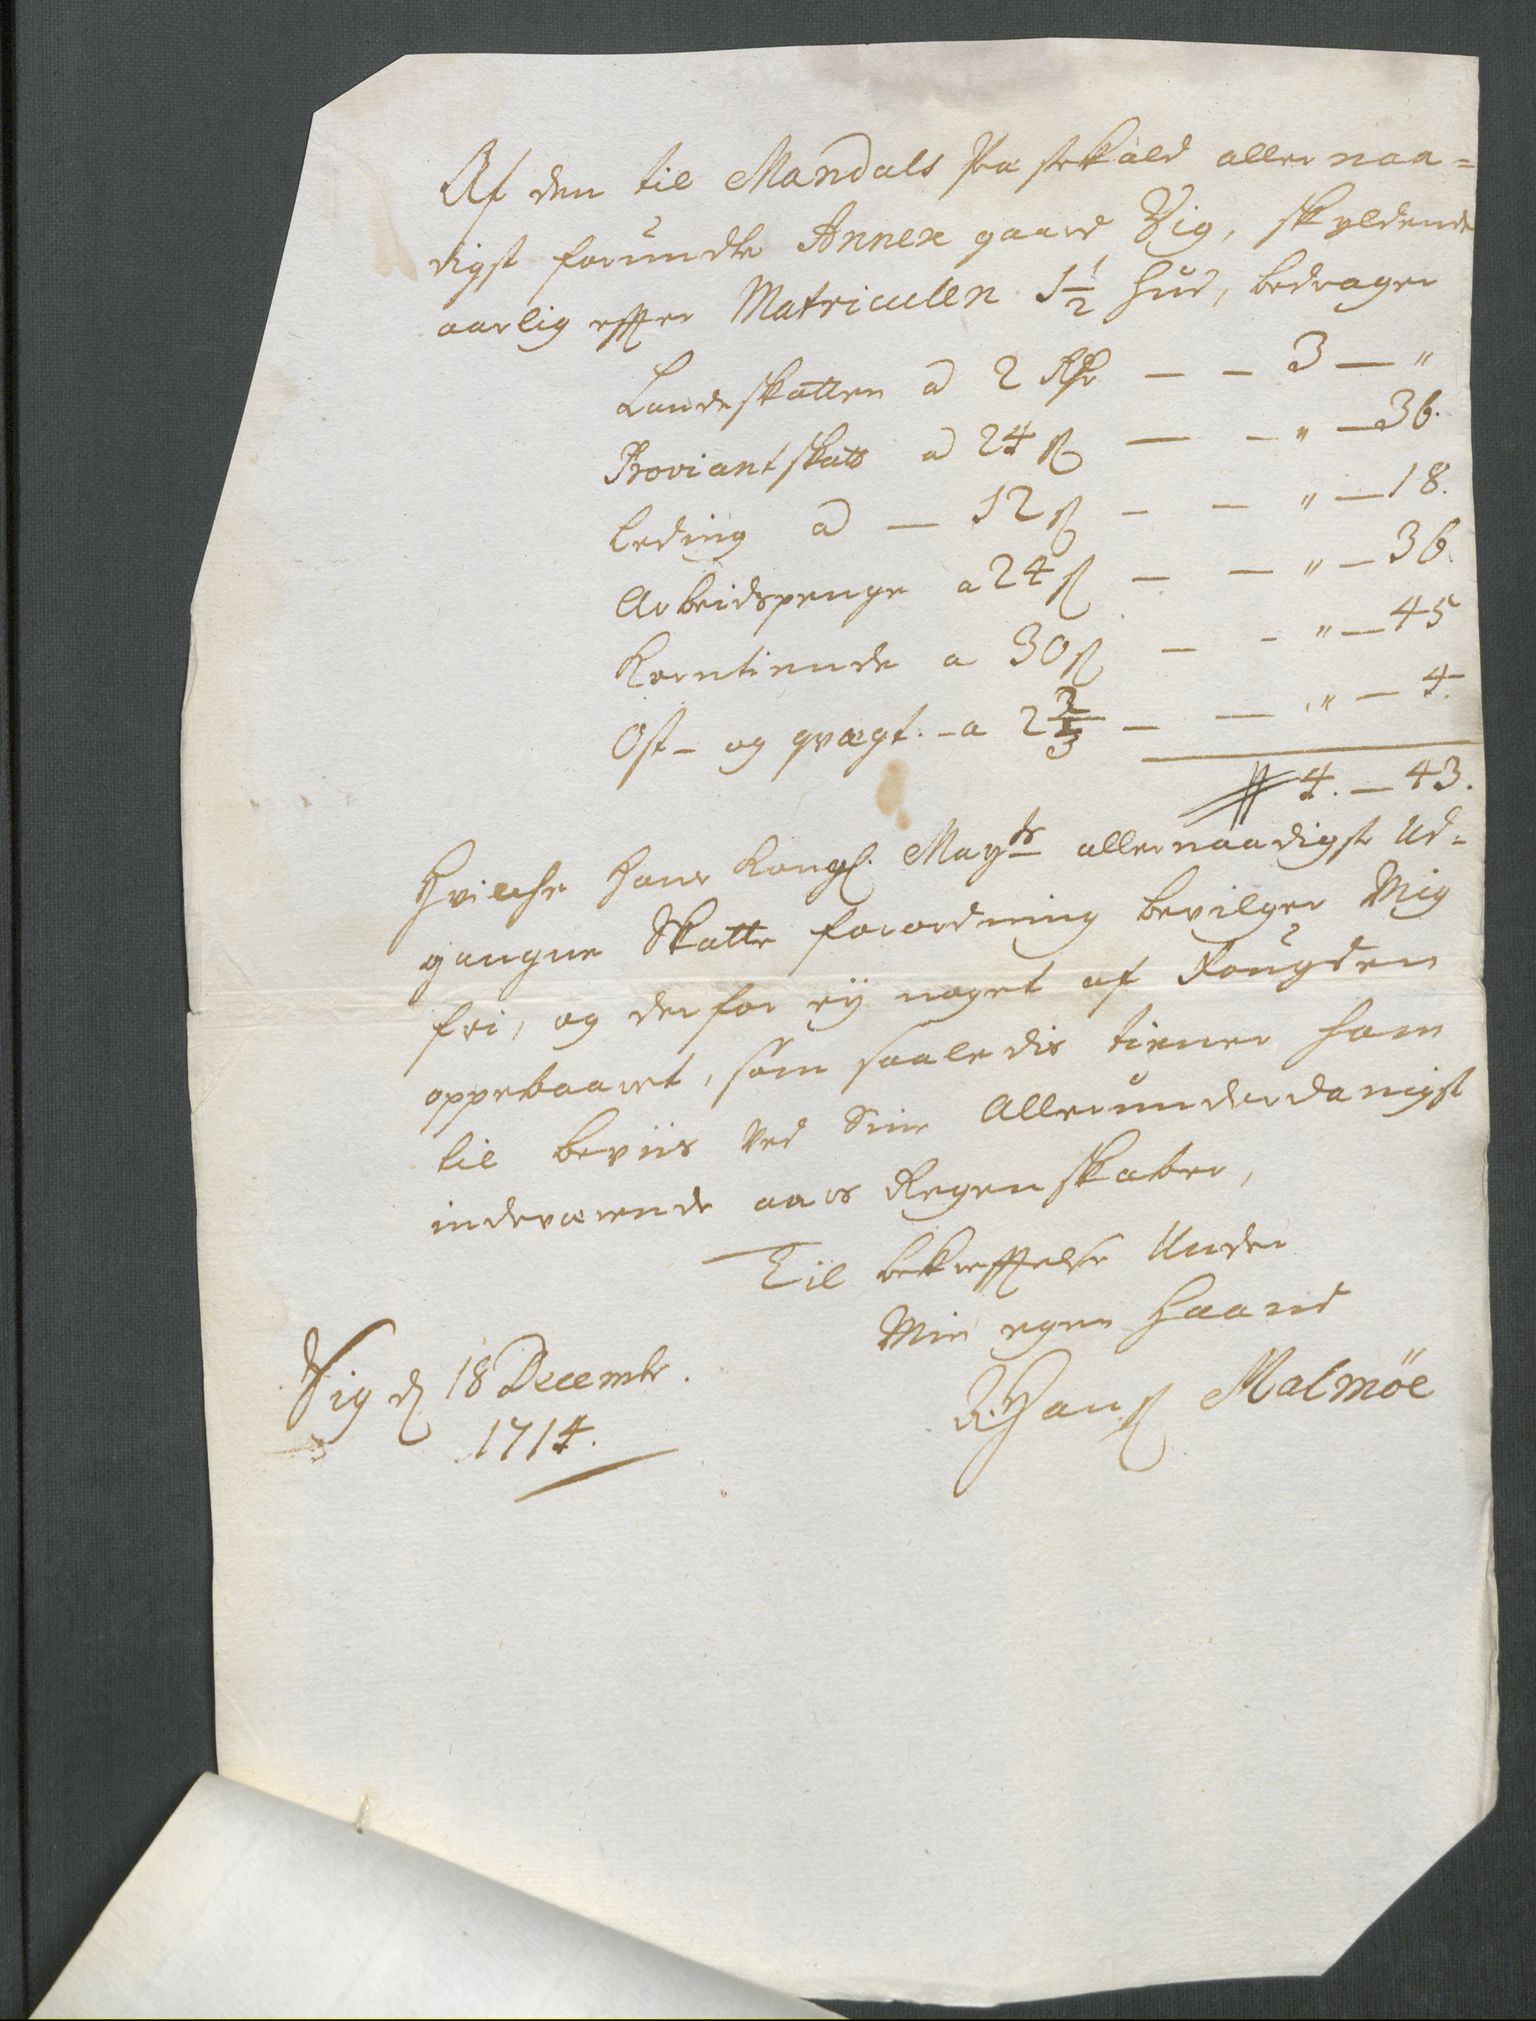 Af den til Mandals Præstekald allernaa=
digst forundte Annex gaard Vig, skyldende
aarlig effter Matriculen 1 1/2 hud, bedrager
Landskatten a 2 Rdr — — 3 — "
Proviantskatt a 24 ß — - " — 36.
Leding a — 12 ß — — " — 18.
Arbeidspenge a 24 ß — — " — 36.
Korntiende a 30 ß — - " — 45
Ost- og qvægt. - a 2 2/3 — — " — 4.
4. — 43.
Hvilche Hans Kongl. Mayts allernaadigste Ud-
gangne Skatte forordning bevilger Mig
fri, og derfor ey noget af Fougden
oppebaaret, som saaledis tiener ham
til beviis ved Sine Allerunderdanigst
indeværende aars Regenskaber,
Til bekræfftelse Under
Min egen Haand
Vig d 18 Decembr.
1714.
Hanß Malmöe